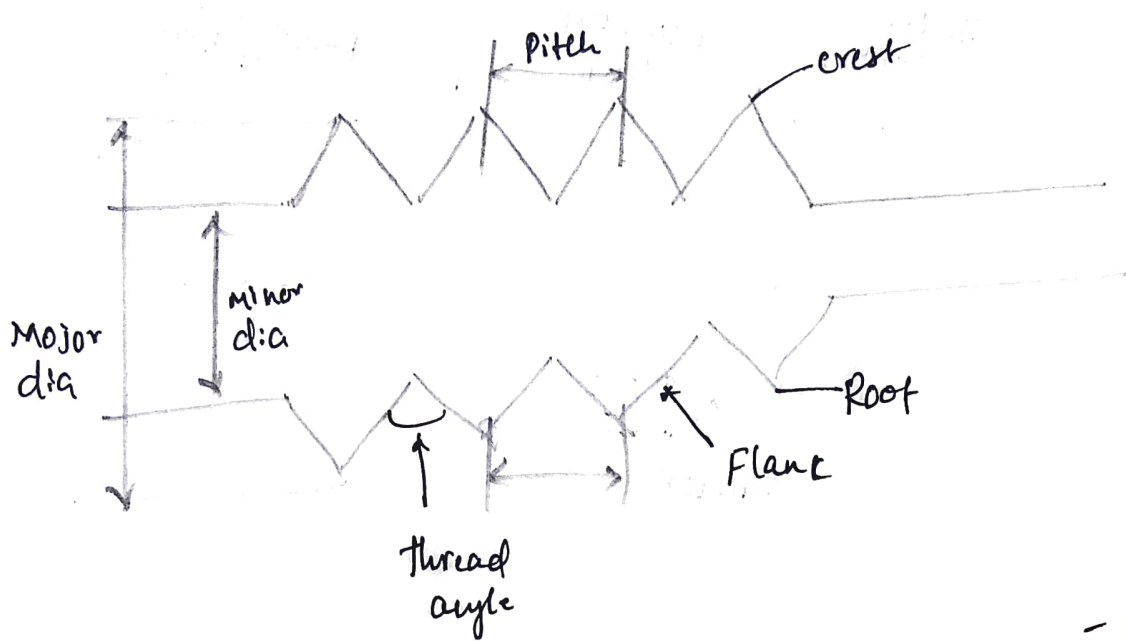 Pitch
crest
Minor
dia
Mojor
dia
Root
Flank
thread
angle